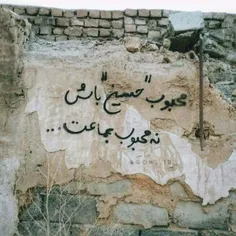 محبوب "حسین" باش
نه محبوب جماعت...